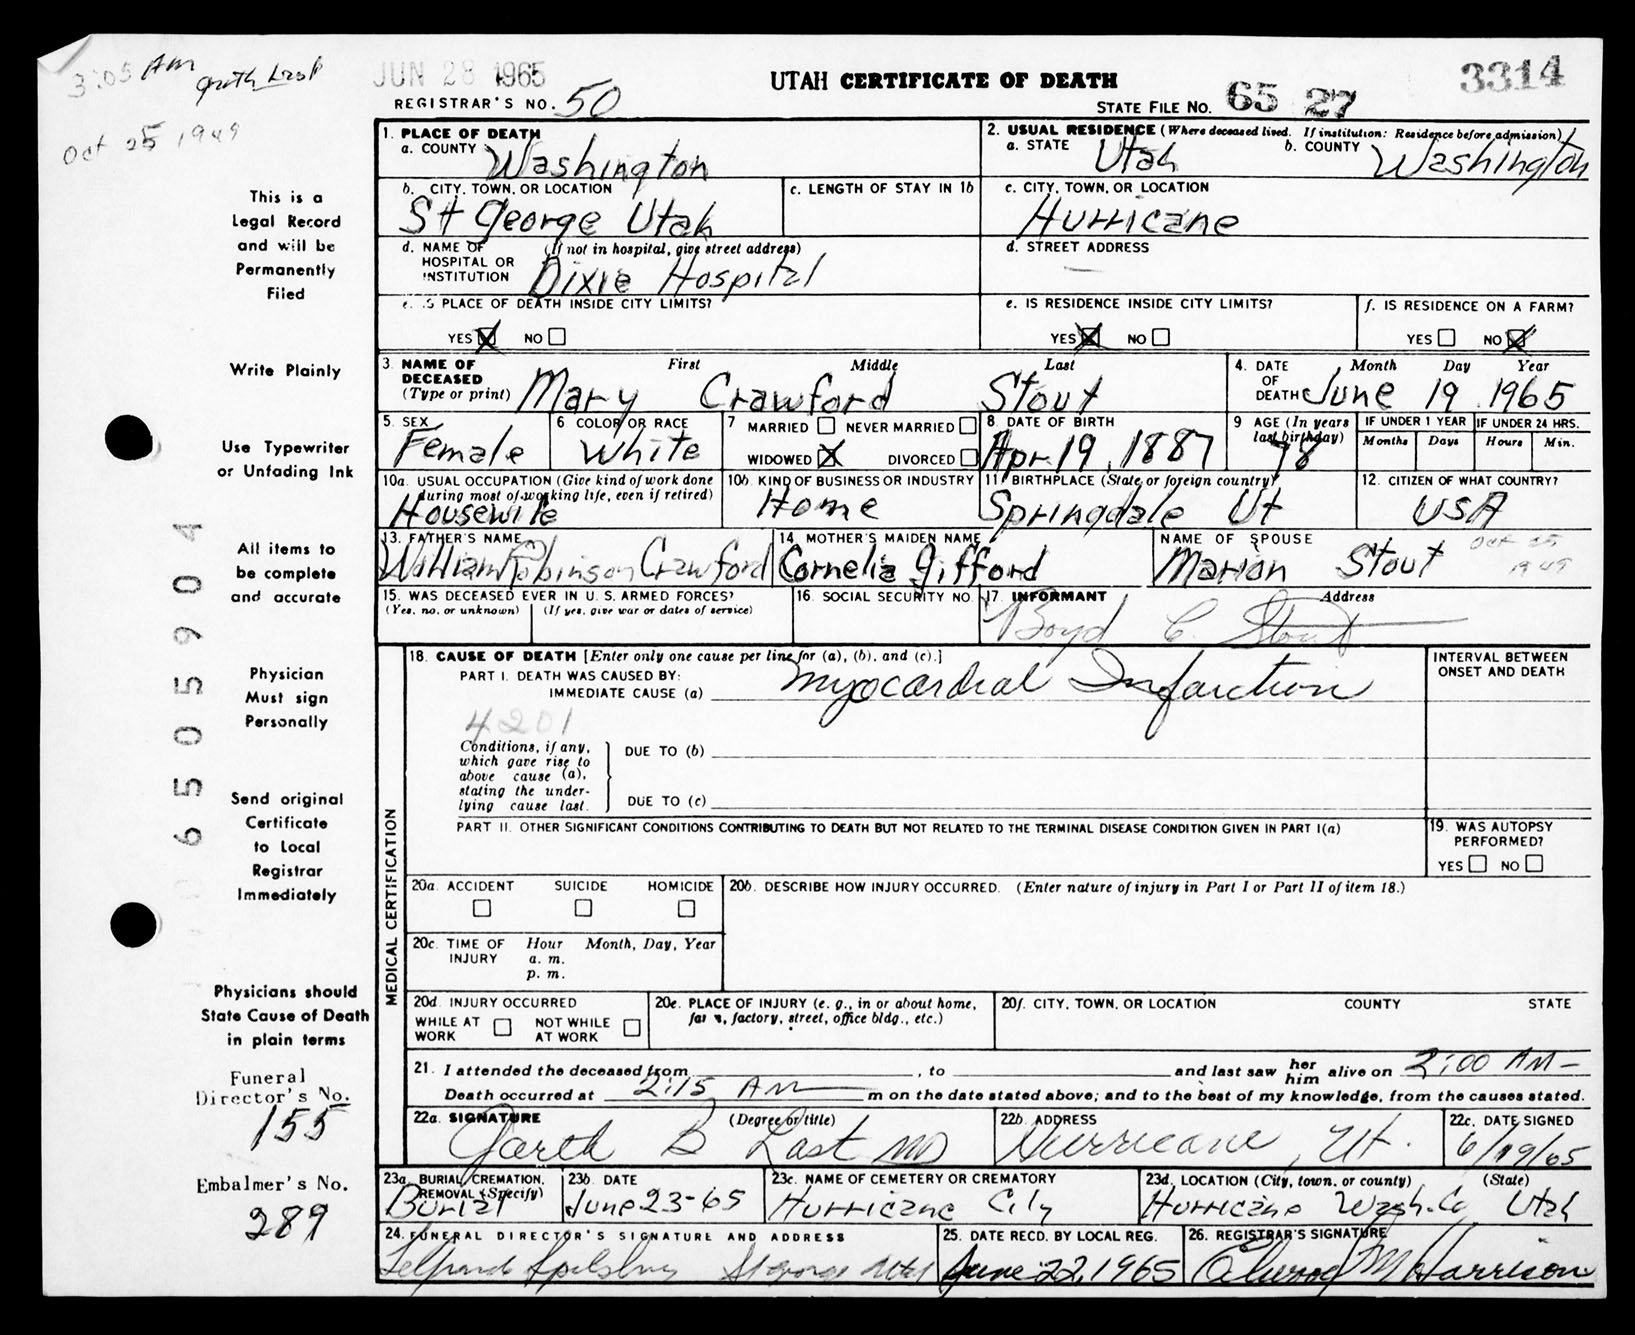 3:05 AM
JUN 28 1965
UTAH CERTIFICATE OF DEATH
3314
REGISTRAR'S NO. 50
STATE FILE NO. 65 27
Oct 25 1949
This is a
Legal Record
and will be
Permanently
Filed
Write Plainly
Use Typewriter
or Unfading Ink
All items to
be complete
and accurate
Physician
Must sign
Personally
Send original
Certificate
to Local
Registrar
Immediately
Physicians should
State Cause of Death
in plain terms
Funeral
Director's No.
155
Embalmer's No.
289
6505904
1. PLACE OF DEATH
a. COUNTY Washington
2. USUAL RESIDENCE (Where deceased lived. If institution: Residence before admission)
a. STATE Utah b. COUNTY Washington
b. CITY, TOWN, OR LOCATION
St George Utah
c. LENGTH OF STAY IN 1b
c. CITY, TOWN, OR LOCATION
Hurricane
d. NAME OF HOSPITAL OR INSTITUTION (If not in hospital, give street address)
Dixie Hospital
d. STREET ADDRESS
—
e. IS PLACE OF DEATH INSIDE CITY LIMITS?
YES X NO
e. IS RESIDENCE INSIDE CITY LIMITS?
YES X NO
f. IS RESIDENCE ON A FARM?
YES NO X
3. NAME OF DECEASED (Type or print) First Middle Last
Mary Crawford Stout
4. DATE OF DEATH Month Day Year
June 19 1965
5. SEX
Female
6 COLOR OR RACE
White
7 MARRIED NEVER MARRIED
WIDOWED X DIVORCED
8. DATE OF BIRTH
Apr. 19, 1887
9 AGE (In years last birthday)
78
IF UNDER 1 YEAR
Months Days
IF UNDER 24 HRS.
Hours Min.
10a. USUAL OCCUPATION (Give kind of work done during most of working life, even if retired)
Housewife
10b. KIND OF BUSINESS OR INDUSTRY
Home
11. BIRTHPLACE (State or foreign country)
Springdale Ut
12. CITIZEN OF WHAT COUNTRY?
USA
13. FATHER'S NAME
William Robinson Crawford
14. MOTHER'S MAIDEN NAME
Cornelia Gifford
NAME OF SPOUSE
Marion Stout
Oct 25
1949
15. WAS DECEASED EVER IN U.S. ARMED FORCES?
(Yes, no, or unknown) (If yes, give war or dates of service)
16. SOCIAL SECURITY NO.
17. INFORMANT Address
Boyd C. Stout
MEDICAL CERTIFICATION
18. CAUSE OF DEATH [Enter only one cause per line for (a), (b), and (c).]
PART I. DEATH WAS CAUSED BY:
IMMEDIATE CAUSE (a) Myocardial Infarction
INTERVAL BETWEEN
ONSET AND DEATH
4201
Conditions, if any,
which gave rise to
above cause (a),
stating the under-
lying cause last.
DUE TO (b)
DUE TO (c)
PART II. OTHER SIGNIFICANT CONDITIONS CONTRIBUTING TO DEATH BUT NOT RELATED TO THE TERMINAL DISEASE CONDITION GIVEN IN PART I(a)
19. WAS AUTOPSY
PERFORMED?
YES NO
20a. ACCIDENT SUICIDE HOMICIDE
20b. DESCRIBE HOW INJURY OCCURRED. (Enter nature of injury in Part I or Part II of item 18.)
20c. TIME OF INJURY Hour Month, Day, Year
a. m.
p. m.
20d. INJURY OCCURRED
WHILE AT WORK NOT WHILE AT WORK
20e. PLACE OF INJURY (e. g., in or about home,
farm, factory, street, office bldg., etc.)
20f. CITY, TOWN, OR LOCATION COUNTY STATE
21. I attended the deceased from , to and last saw her him alive on 2:00 AM-
Death occurred at 2:15 AM m on the date stated above; and to the best of my knowledge, from the causes stated.
22a. SIGNATURE (Degree or title)
Gareth B Last MD
22b. ADDRESS
Hurricane, Ut.
22c. DATE SIGNED
6/19/65
23a. BURIAL, CREMATION, REMOVAL (Specify)
Burial
23b. DATE
June 23-65
23c. NAME OF CEMETERY OR CREMATORY
Hurricane City
23d. LOCATION (City, town, or county) (State)
Hurricane Wash. Co Utah
24. FUNERAL DIRECTOR'S SIGNATURE AND ADDRESS
Spilsbury St George Utah
25. DATE RECD. BY LOCAL REG.
June 22, 1965
26. REGISTRAR'S SIGNATURE
M Harrison